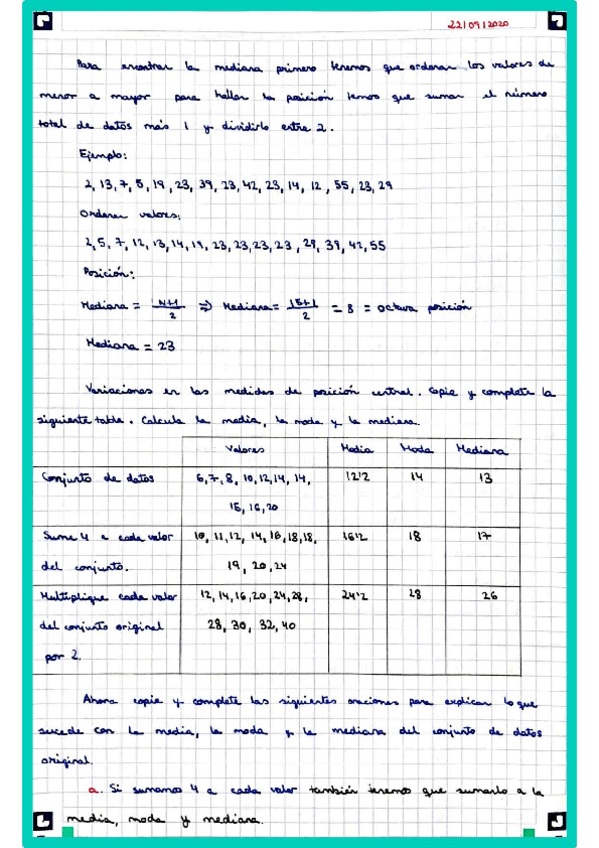 22/09/2020
Para encontrar la mediana primero tenemos que ordenar los valores de
menor a mayor para hallar la posición temos que sumar el número
total de datos más 1 y dividirlo entre 2.
Ejemplo:
2, 13, 7, 5, 19, 23, 39, 23, 42, 23, 14, 12, 55, 23, 29
Ordenar valores:
2, 5, 7, 12, 13, 14, 19, 23, 23, 23, 23, 29, 39, 42, 55
Posición:
Mediana = N+1/2 ⇒ Mediana = 15+1/2 = 8 = octava posición
Mediana = 23
Variaciones en las medidas de posición central. Copie y complete la
siguiente tabla. Calcula la media, la moda y la mediana.
Valores Media Moda Mediana
Conjunto de datos 6, 7, 8, 10, 12, 14, 14, 12'2 14 13
15, 16, 20
Sume 4 a cada valor 10, 11, 12, 14, 16, 18, 18, 16'2 18 17
del conjunto. 19, 20, 24
Multiplique cada valor 12, 14, 16, 20, 24, 28, 24'2 28 26
del conjunto original 28, 30, 32, 40
por 2.
Ahora copie y complete las siguientes oraciones para explicar lo que
sucede con la media, la moda y la mediana del conjunto de datos
original.
a. Si sumamos 4 a cada valor también tenemos que sumarlo a la
media, moda y mediana.